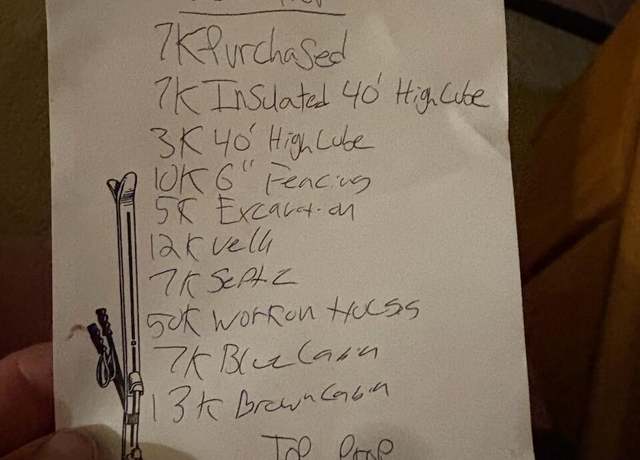 7K Purchased
7K Insulated 40' High Cube
3K 40' High Cube
10K 6" Fencing
5K Excavation
12K Well
7K Septic
50K Work on Houses
7K Blue Cabin
13K Brown Cabin
Top Prop